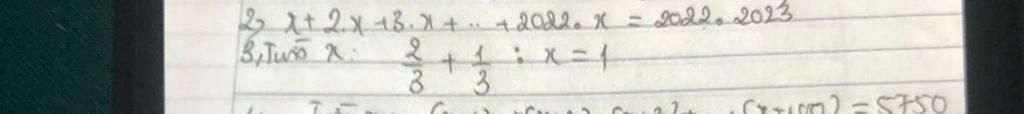 2, x + 2.x + 3.x + .. + 2022.x = 2022.2023
3, Tìm x: 2/3 + 1/3 : x = 1
(x+100) = 5750